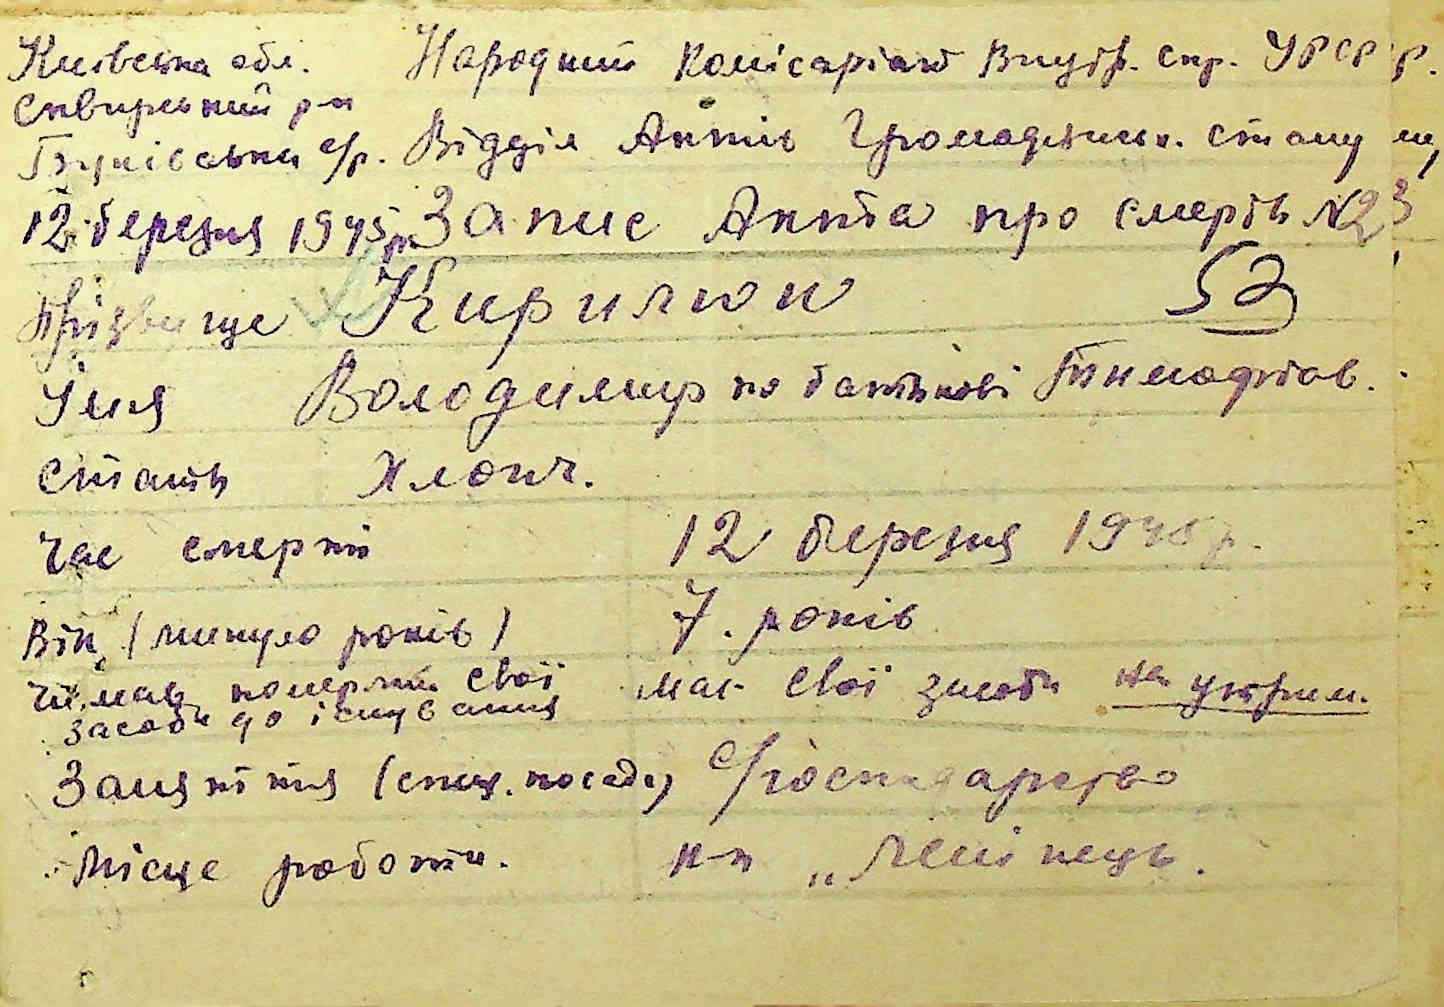 Київська обл. Народний Комісаріат Внутр. Спр. УРСР р.
Сквирський р-н
с/р. Відділ Актів Громадянськ. стану
12 березня 1945 р. Запис Акта про смерть №23
Прізвище Кирилюк 53
Імя Володимир по батькові Тимофтов.
Стать Хлопч.
Час смерти 12 березня 1945 р.
Вік (минуло років) 7. років
Чи мав померлий свої має свої засоби на утрим.
засоби до існування
Заняття (спец. посада) с/господарство
Місце роботи. к-п „Ленінець.